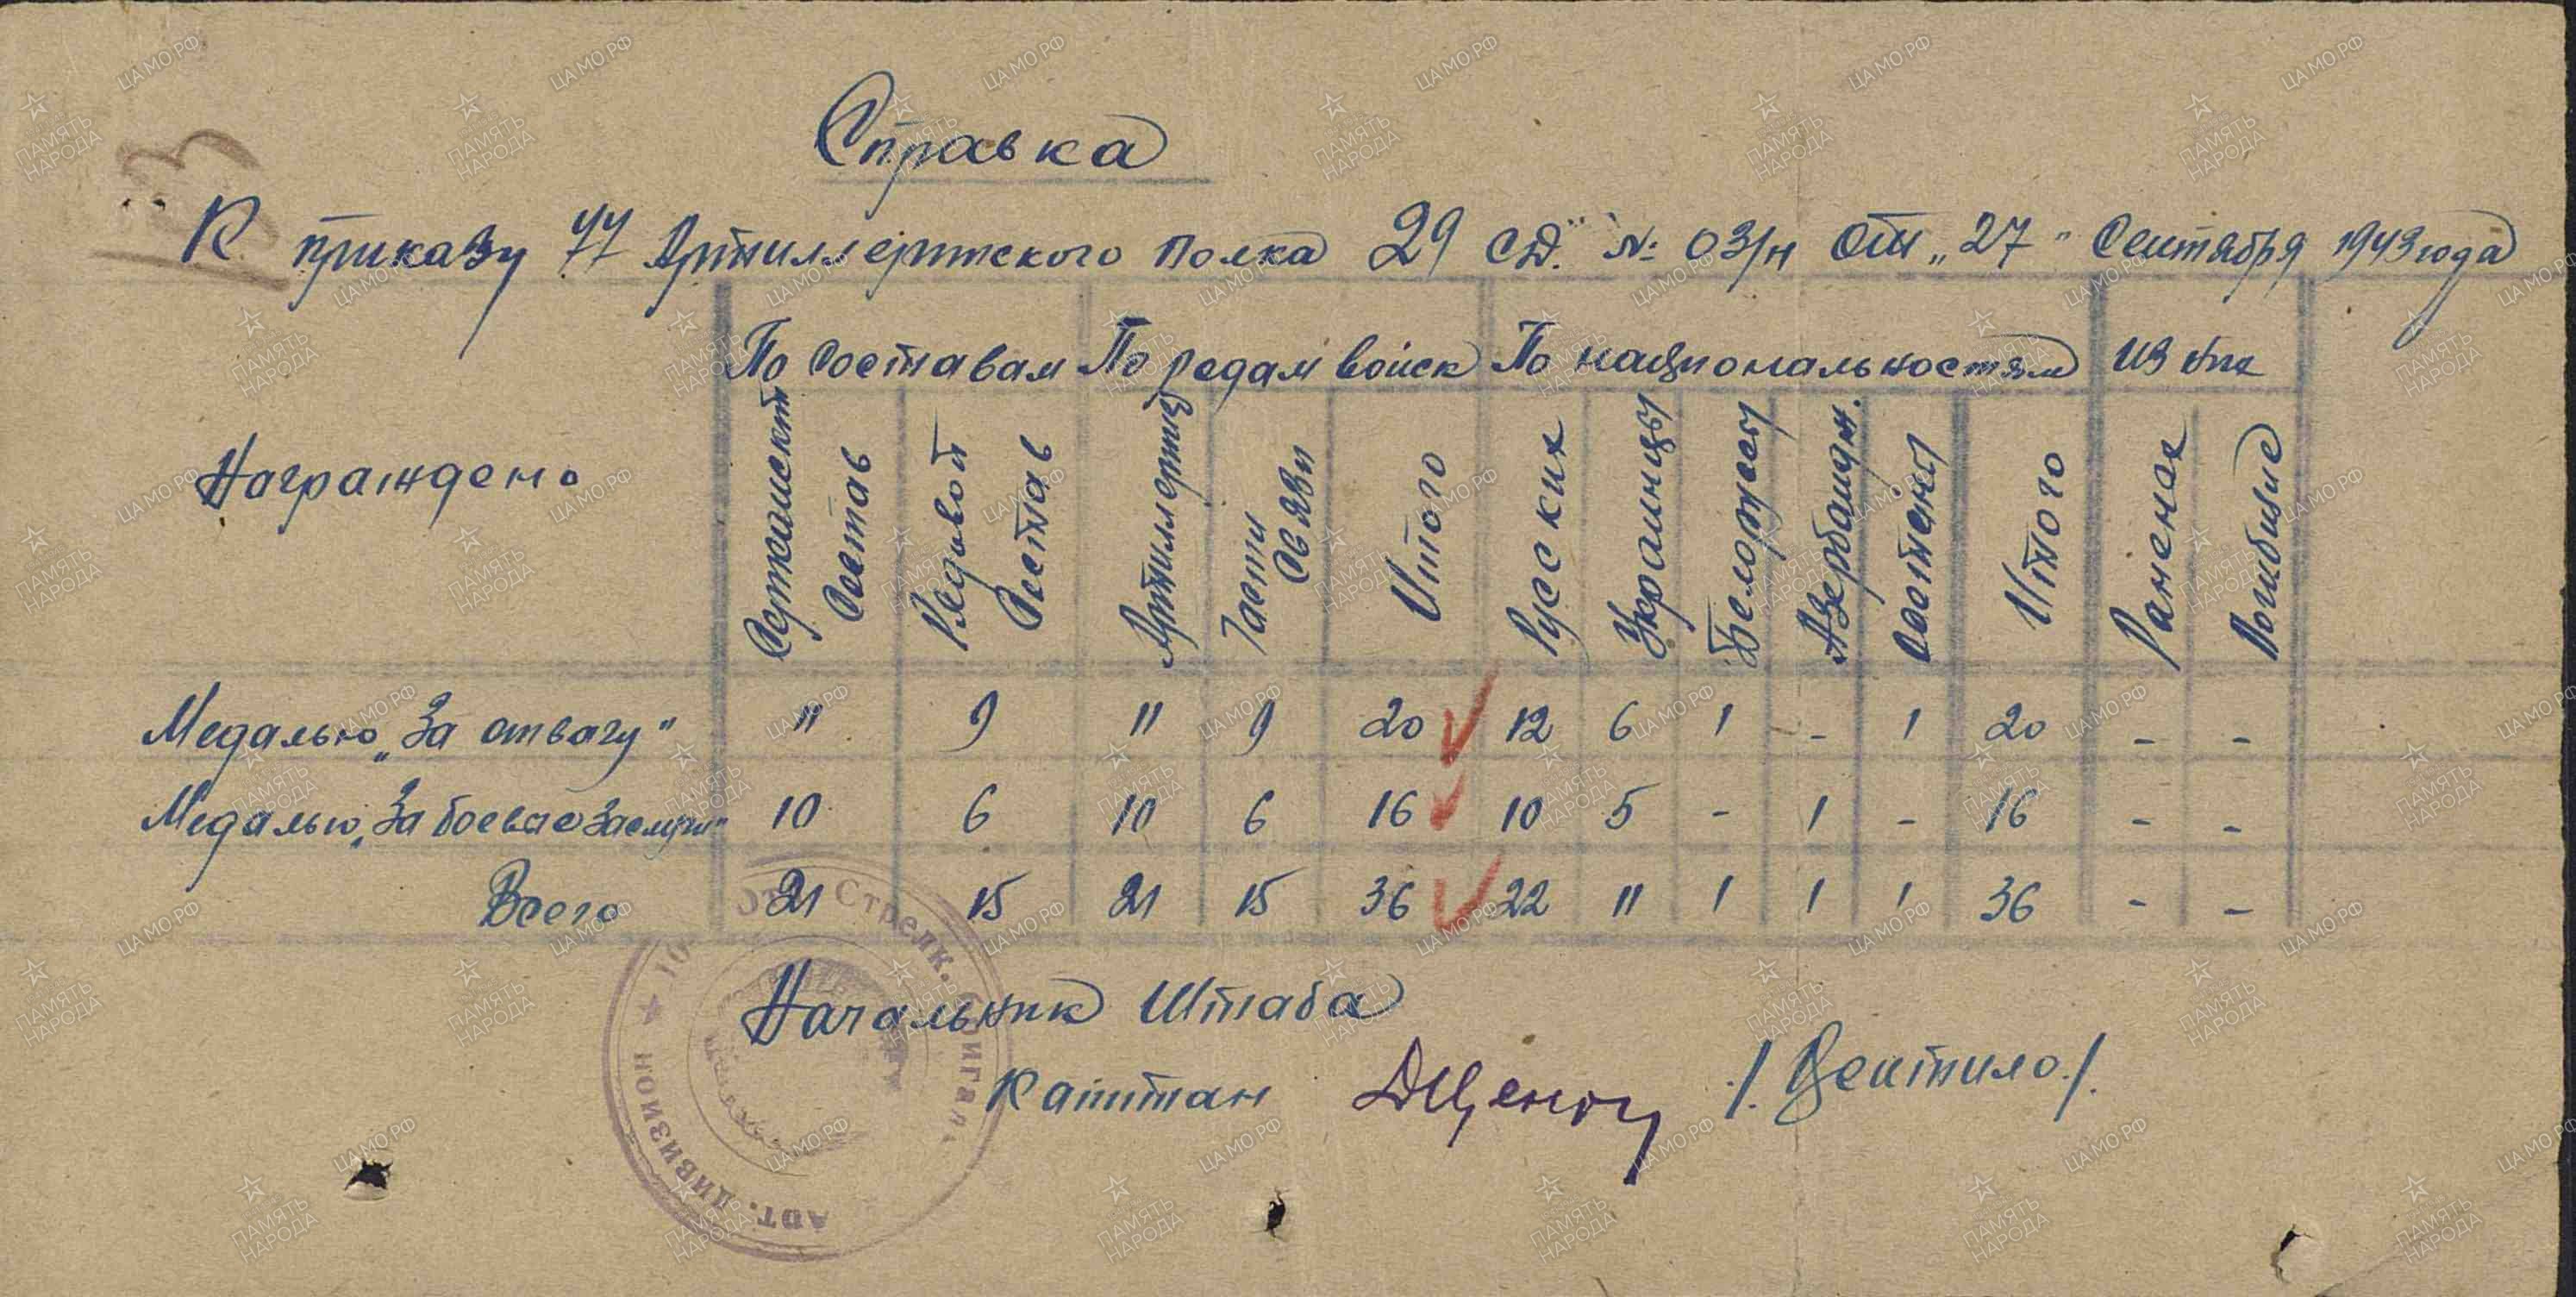 Справка
К приказу 77 Артиллерийского полка 29 СД. № 03/н от „27“ Сентября 1943 года
Награждено
По составам По родам войск По национальностям Из них
Сержантский состав
Рядовой состав
Артиллерия
Части связи
Итого
Русских
Украинцы
Белоруссы
Азербайдж.
Осетины
Итого
Раненых
Погибшие
Медалью „За отвагу" 11 9 11 9 20 12 6 1 - 1 20 - -
Медалью „За боевые заслуги" 10 6 10 6 16 10 5 - 1 - 16 - -
Всего 21 15 21 15 36 22 11 1 1 1 36 - -
Начальник Штаба
Капитан /. /
Стрелк. Бригады
Арт. дивизион
ПАМЯТЬ НАРОДА
ЦАМО.РФ